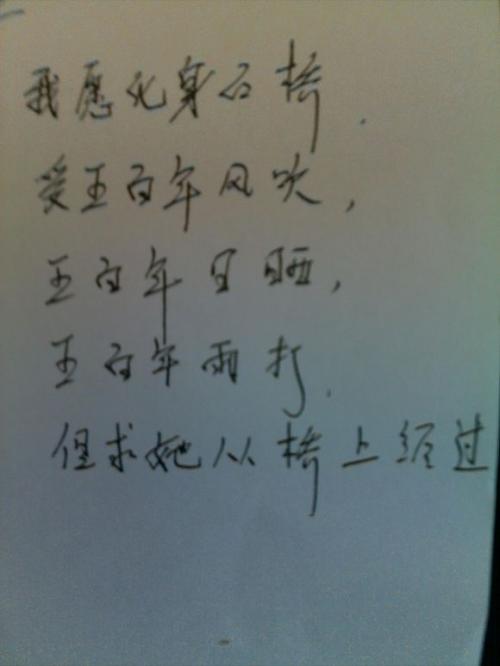 我愿化身石桥.
受五百年风吹,
五百年日晒,
五百年雨打.
但求她从桥上经过